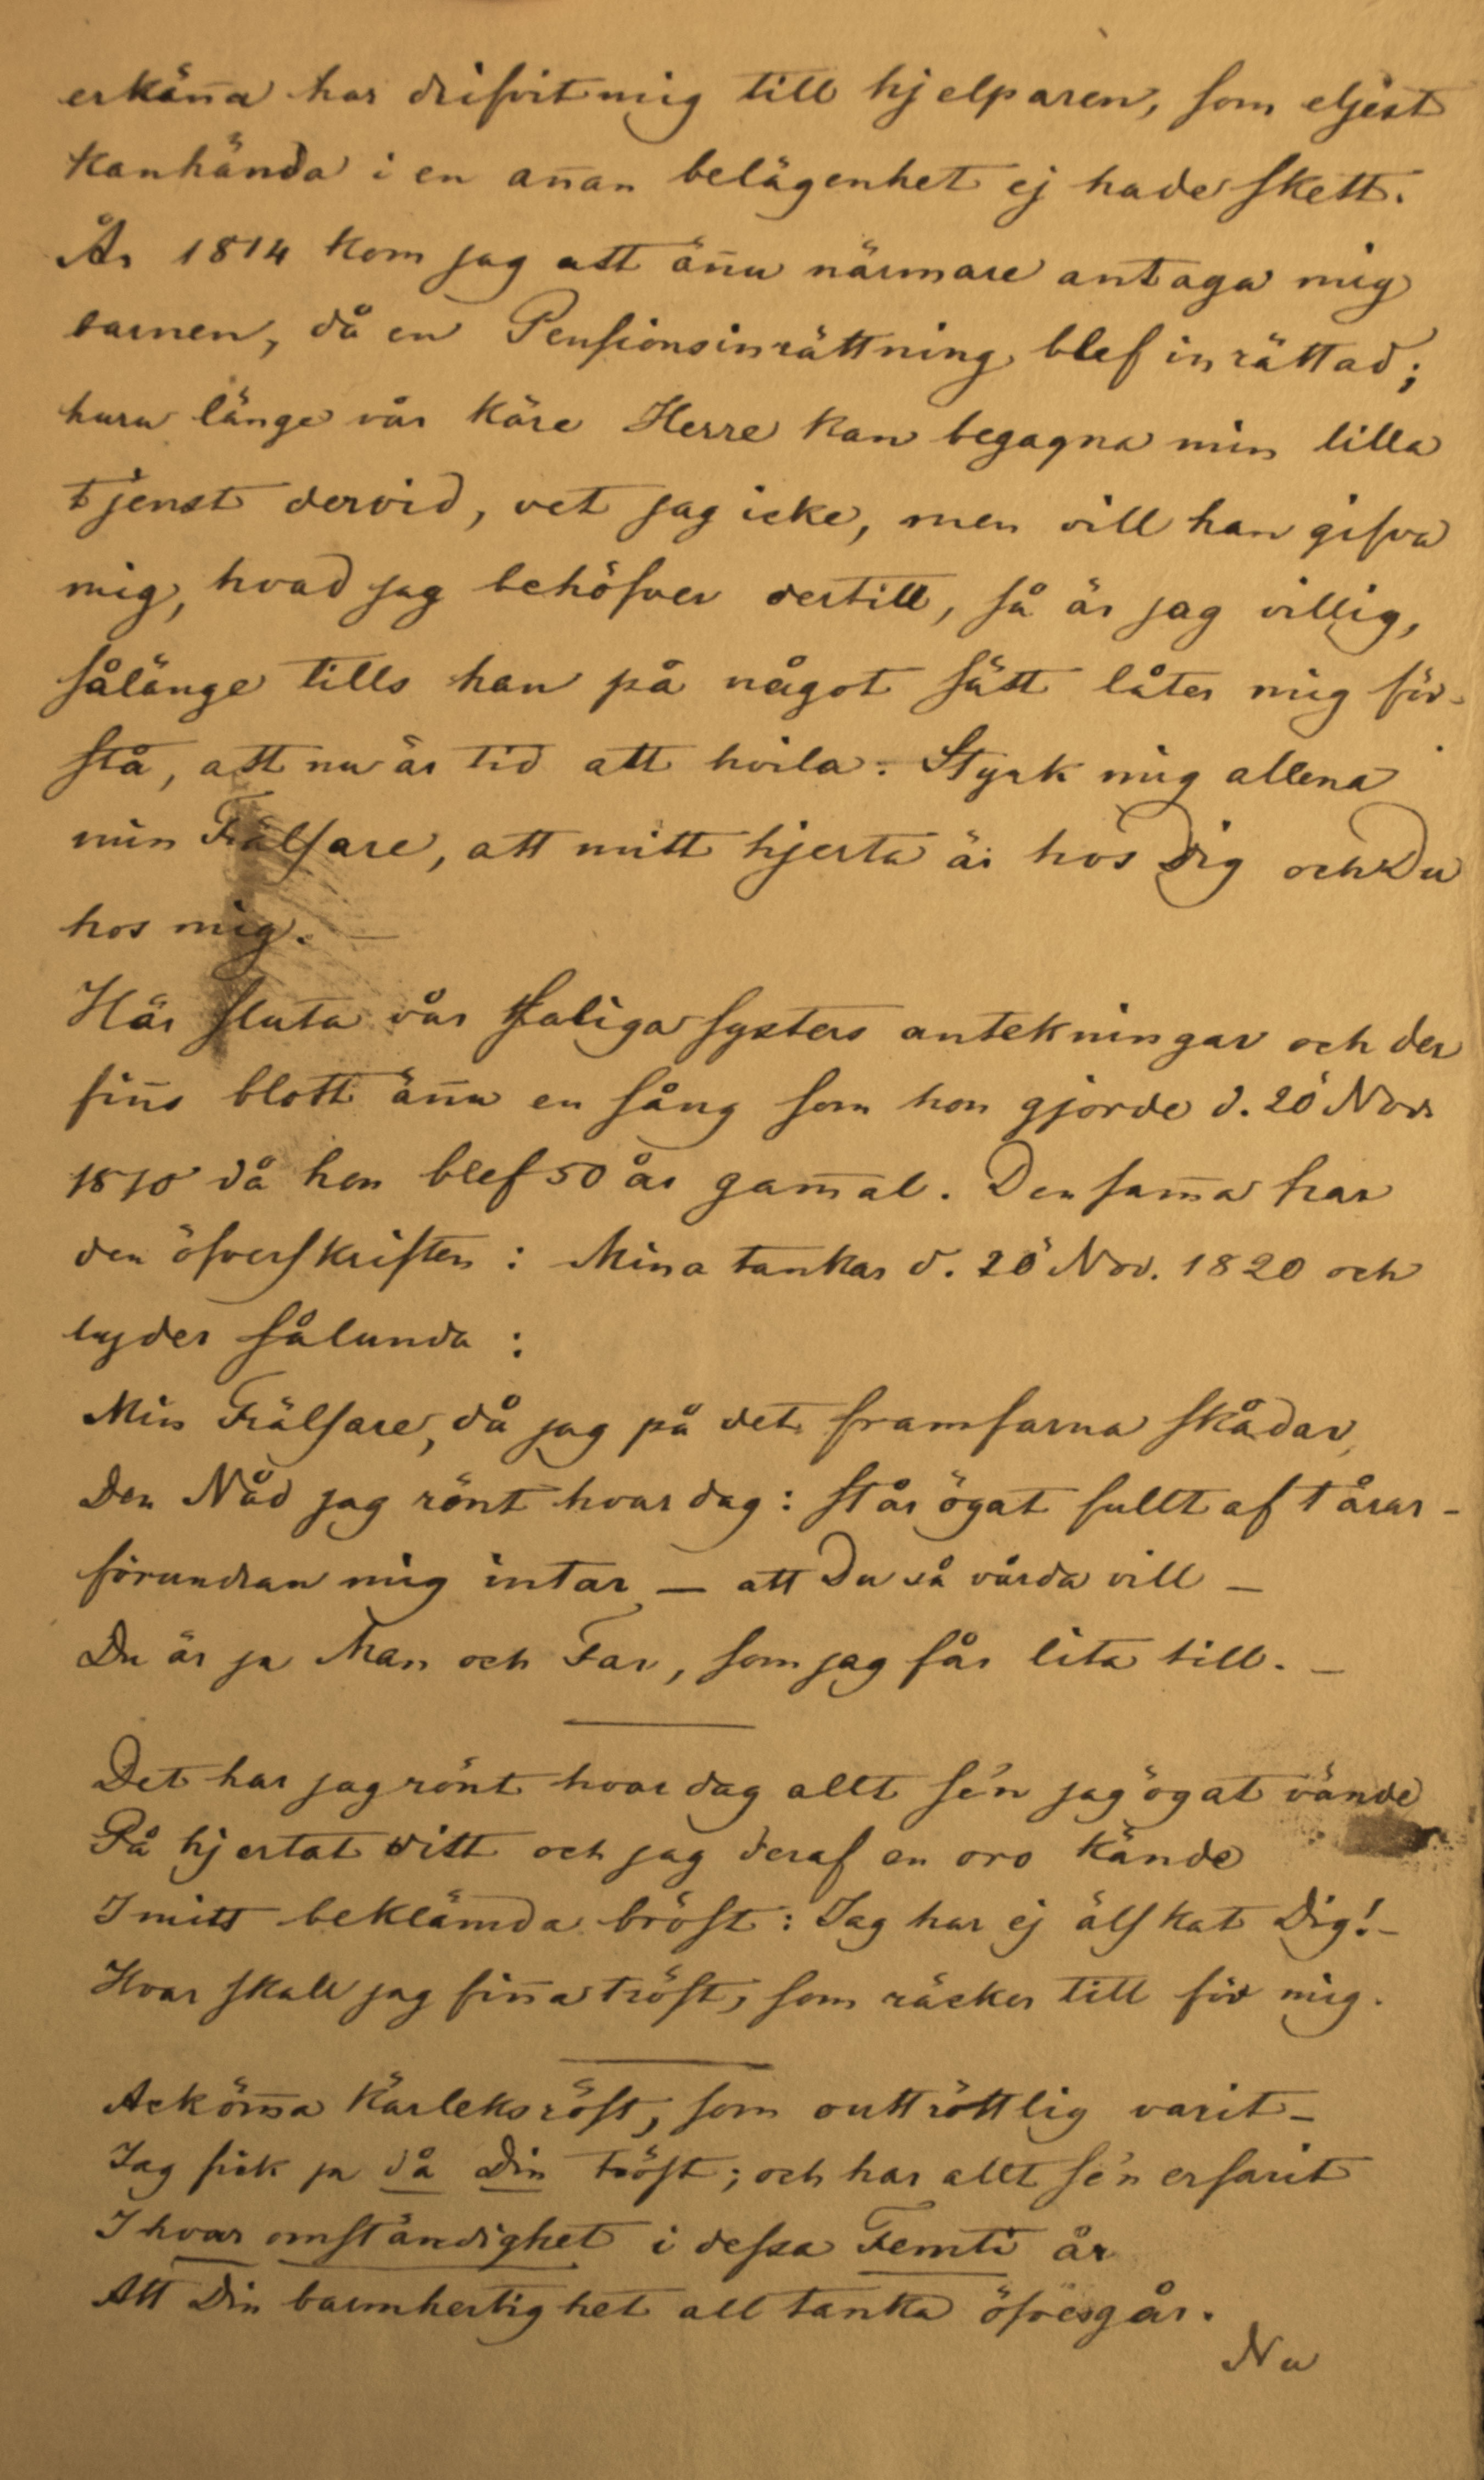 erkän̄a har drifvit mig till hjelparen, som eljest
kanhända i en an̄an belägenhet ej hade skett.
År 1814 kom jag att än̄u närmare antaga mig
barnen, då en Pensionsinrättning blef inrättad;
huru länge vår käre Herre kan begagna min lilla
tjenst dervid, vet jag icke, men vill han gifva
mig, hvad jag behöfver dertill, så är jag villig,
sålänge tills han på något sätt låter mig för-
stå, att nu är tid att hvila. Styrk mig allena
min Frälsare, att mitt hjerta är hos Dig och Du
hos mig. —
Här sluta vår Saliga systers antekningar och der
fin̄s blott än̄u en sång som hon gjorde d. 20 Nov.
1870 då hon blef 50 år gam̄al. Densam̄a har
den öfverskriften: Mina tankar d. 20 Nov. 1820 och
lyder sålunda:
Min Frälsare, då jag på det framfarna skådar,
Den Nåd jag rönt hvar dag: står ögat fullt af tårar –
förundran mig intar — att Du så vårda vill —
Du är ja Man och Far, som jag får lita till. —
Det har jag rönt hvar dag allt se'n jag ögat vände
På hjertat ditt och jag deraf en oro kände
I mitt beklämda bröst: Jag har ej älskat Dig! –
Hvar skall jag fin̄a tröst, som räcker till för mig.
Ack öm̄a kärleksröst, som outtröttlig varit –
Jag fick ja då Din tröst; och har allt se'n erfarit
I hvar omständighet i dessa Femti år
Att Din barmhertighet all tanka öfvergår.
Nu